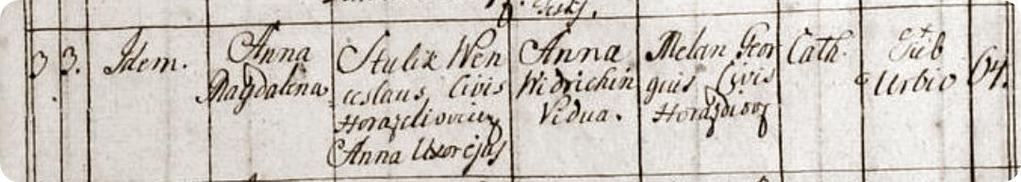 3. Idem.
Anna
Magdalena
Stulik Wen
ceslaus Civis
Horazdiovicen
Anna Uxor ejus
Anna
Widrichin
Vidua.
Melan Geor
gius Civis
Cath.
Sub
Urbio
64.